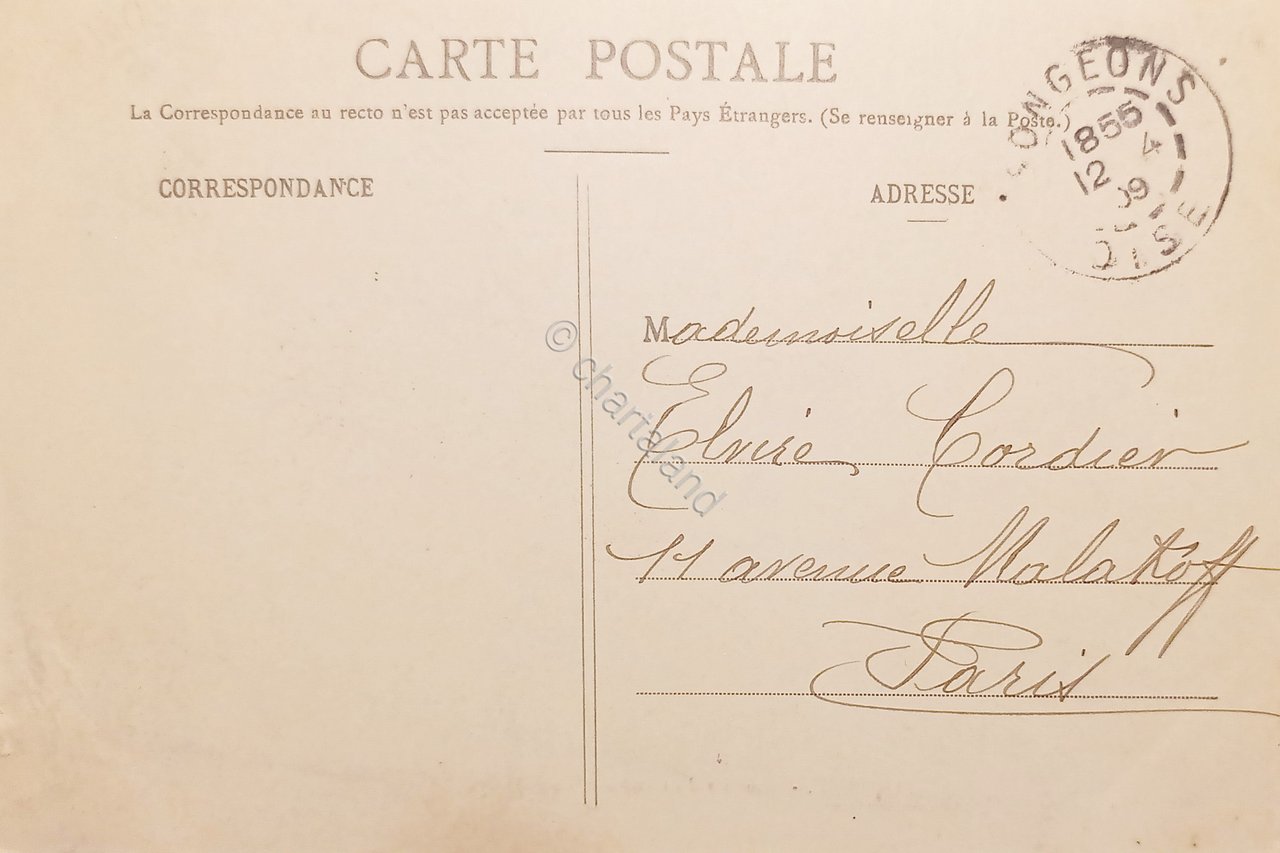 CARTE POSTALE
La Correspondance au recto n'est pas acceptée par tous les Pays Étrangers. (Se renseigner à la Poste.)
CORRESPONDANCE
ADRESSE
SONGEONS
1855
12 4
09
OISE
Mademoiselle
Elvire Cordier
11 avenue Malakoff
Paris
© chartaland